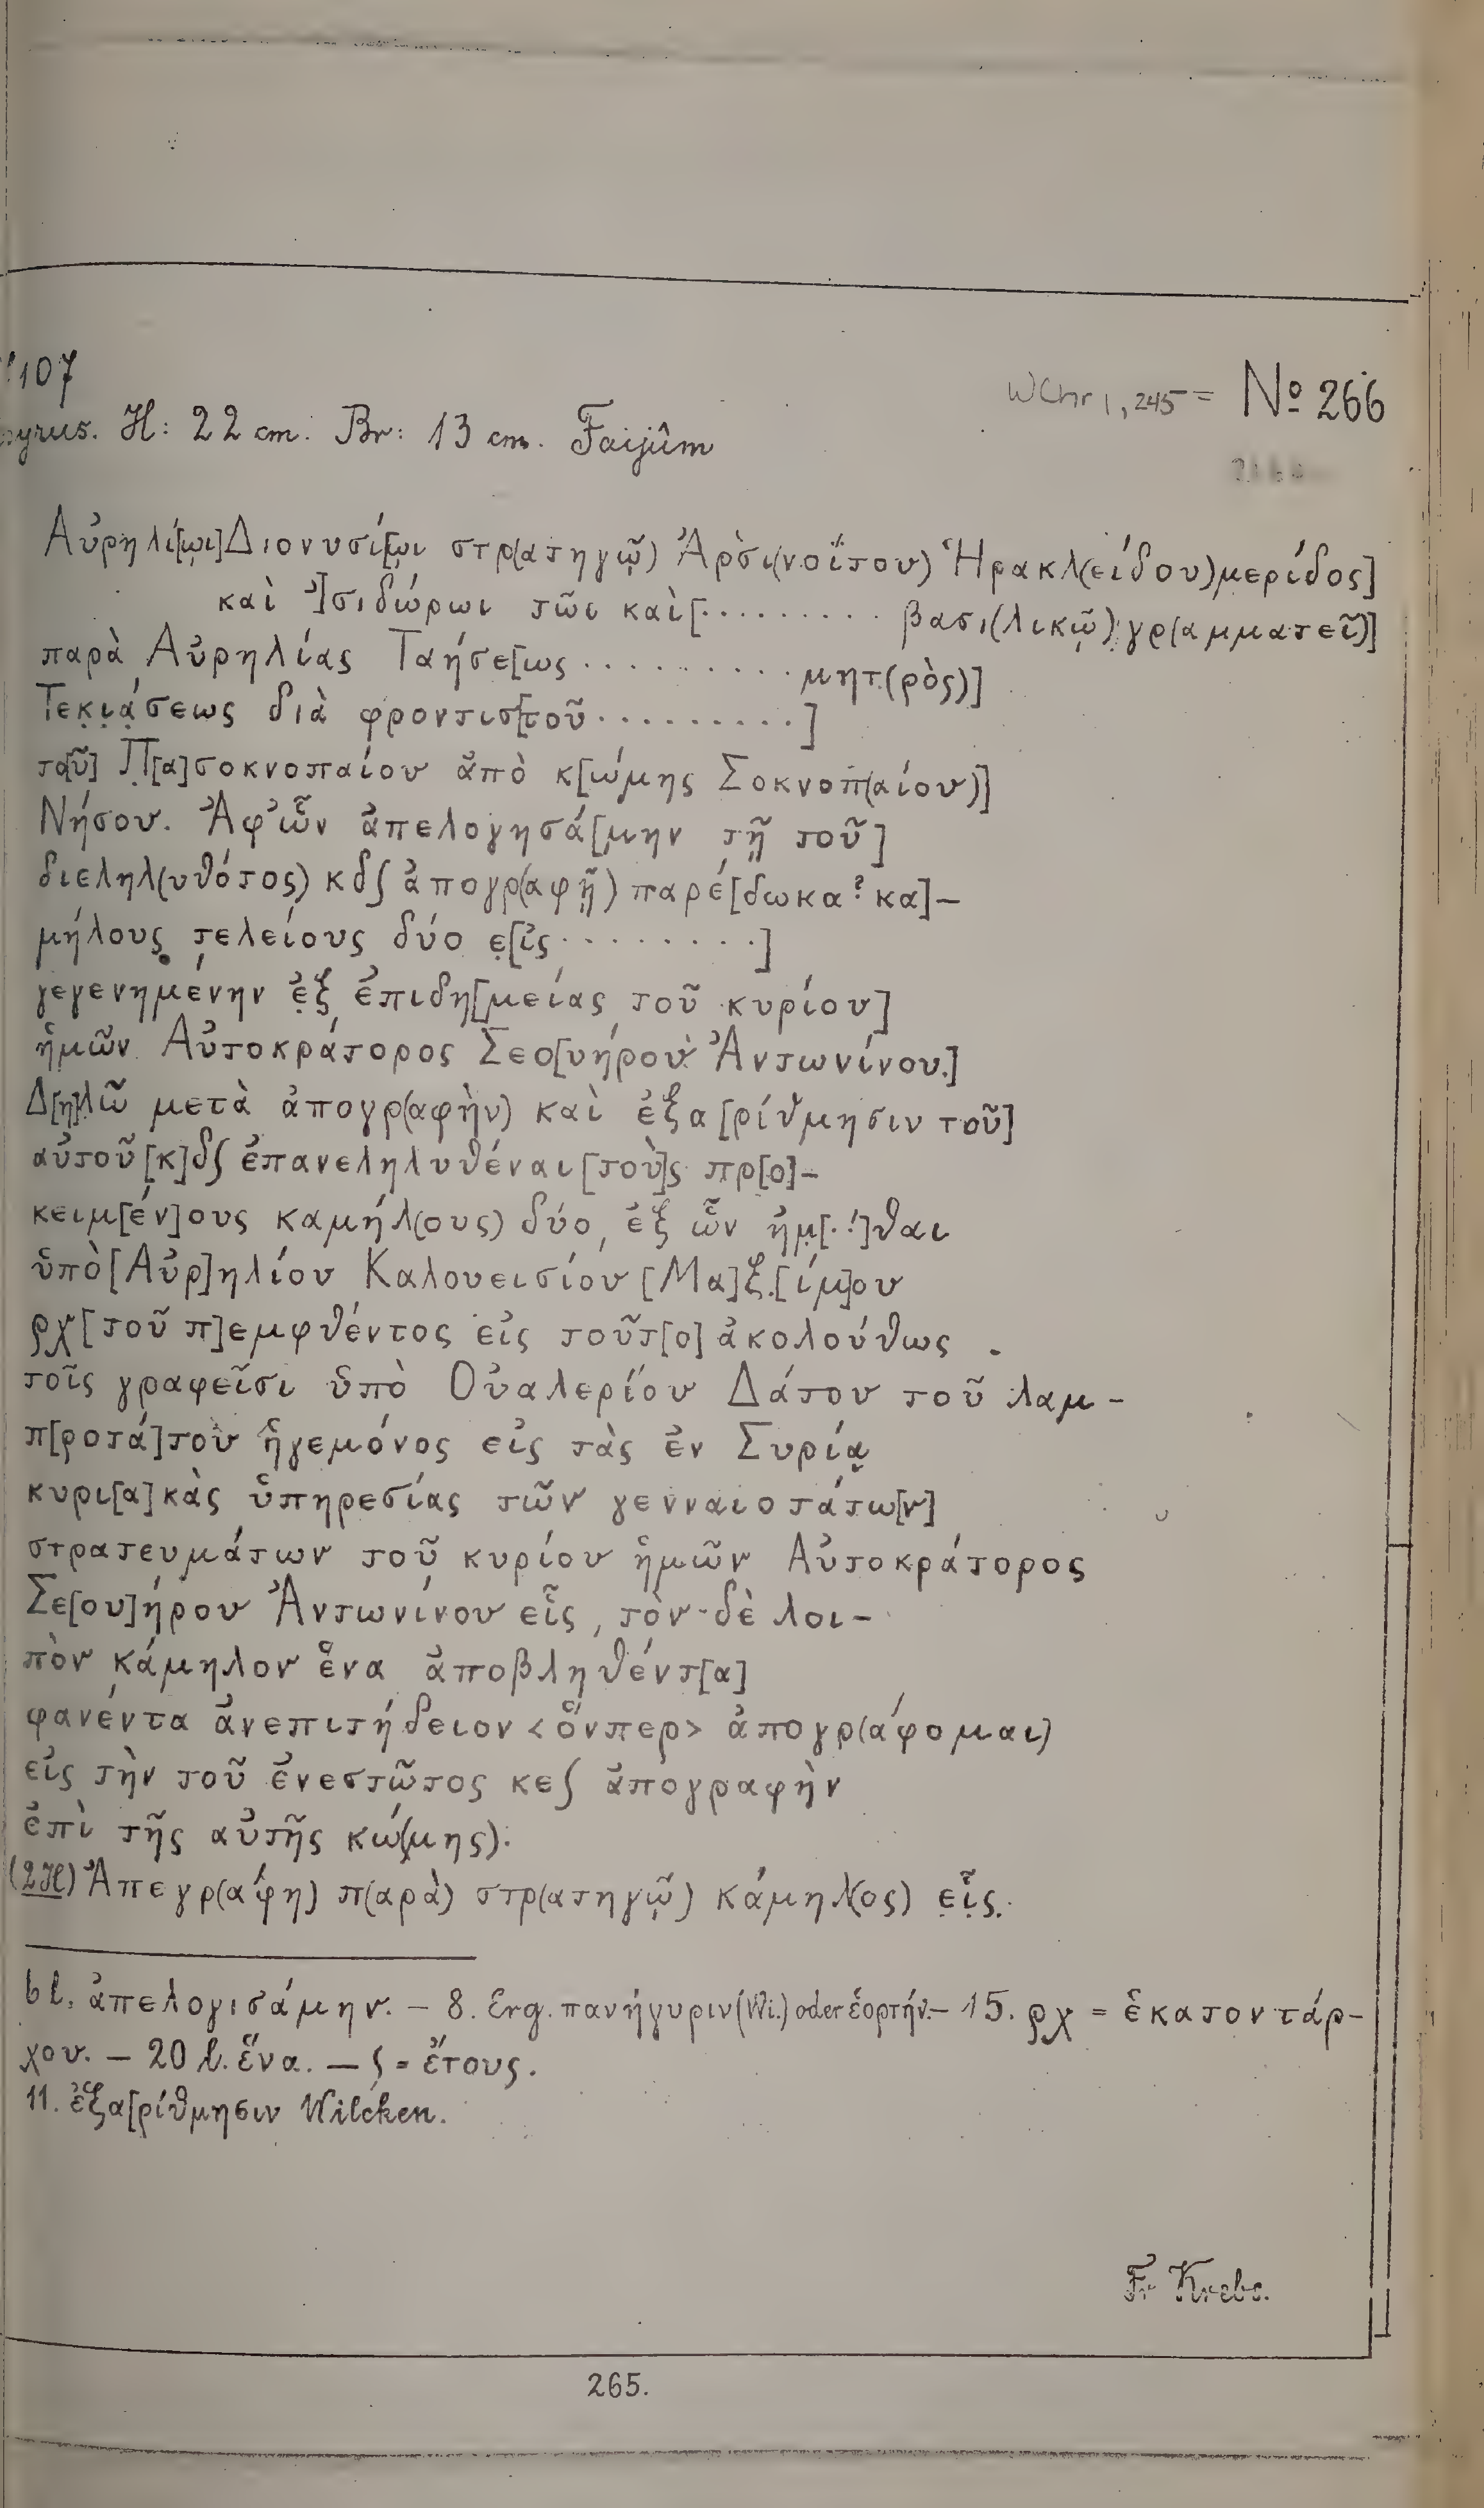 107
WChr 1, 245 = Nº 266
pyrus. H: 22 cm. Br: 13 cm. Faijûm
Αὐρηλί[ωι] Διονυσί[ωι στρ(ατηγῷ) Ἀρσι(νοΐτου) Ἡρακλ(είδου) μερίδος]
καὶ Ἰ]σιδώρωι τῶι καὶ [· · · · · · · · · βασι(λικῷ) γρ(αμματεῖ)]
παρὰ Αὐρηλίας Ταήσε[ως · · · · · · · · · · μητ(ρὸς)]
Τεκιάσεως διὰ φροντισ[τοῦ · · · · · · · · · ·]
το[ῦ] Π[α]σοκνοπαίου ἀπὸ κ[ώμης Σοκνοπ(αίου)]
Νήσου. Ἀφ' ὧν ἀπελογησά[μην τῇ τοῦ]
διεληλ(υθότος) κδʃ ἀπογρ(αφῇ) παρέ[δωκα? κα]-
μήλους τελείους δύο ε[ἰς · · · · · · · · ·]
γεγενημένην ἐξ ἐπιδη[μείας τοῦ κυρίου]
ἡμῶν Αὐτοκράτορος Σεο[υήρου Ἀντωνίνου.]
Δ[η]λῶ μετὰ ἀπογρ(αφὴν) καὶ ἐξα[ρίθμησιν τοῦ]
αὐτοῦ [κ]δʃ ἐπανεληλυθέναι [τοὺ]ς πρ[ο]-
κειμ[έν]ους καμήλ(ους) δύο, ἐξ ὧν ἡμ[··]θαι
ὑπὸ [Αὐρ]ηλίου Καλουεισίου [Μα]ξ[ίμ]ου
ρχ [τοῦ π]εμφθέντος εἰς τοῦτ[ο] ἀκολούθως
τοῖς γραφεῖσι ὑπὸ Οὐαλερίου Δάτου τοῦ λαμ-
π[ροτά]του ἡγεμόνος εἰς τὰς ἐν Συρίᾳ
κυρι[α]κὰς ὑπηρεσίας τῶν γενναιοτάτω[ν]
στρατευμάτων τοῦ κυρίου ἡμῶν Αὐτοκράτορος
Σε[ου]ήρου Ἀντωνίνου εἷς, τὸν δὲ λοι-
πὸν κάμηλον ἕνα ἀποβληθέντ[α]
φανέντα ἀνεπιτήδειον <ὅνπερ> ἀπογρ(άφομαι)
εἰς τὴν τοῦ ἐνεστῶτος κεʃ ἀπογραφὴν
ἐπὶ τῆς αὐτῆς κώ(μης).
(2H) Ἀπεγρ(άφη) π(αρὰ) στρ(ατηγῷ) κάμηλ(ος) εἷς.
6 l. ἀπελογισάμην. — 8. Erg. πανήγυριν (Wi.) oder ἑορτήν. — 15. ρχ = ἑκατοντάρ-
χου. — 20 l. ἕνα. — ʃ = ἔτους.
11. ἐξα[ρίθμησιν Wilcken.
Fr Krebs.
265.